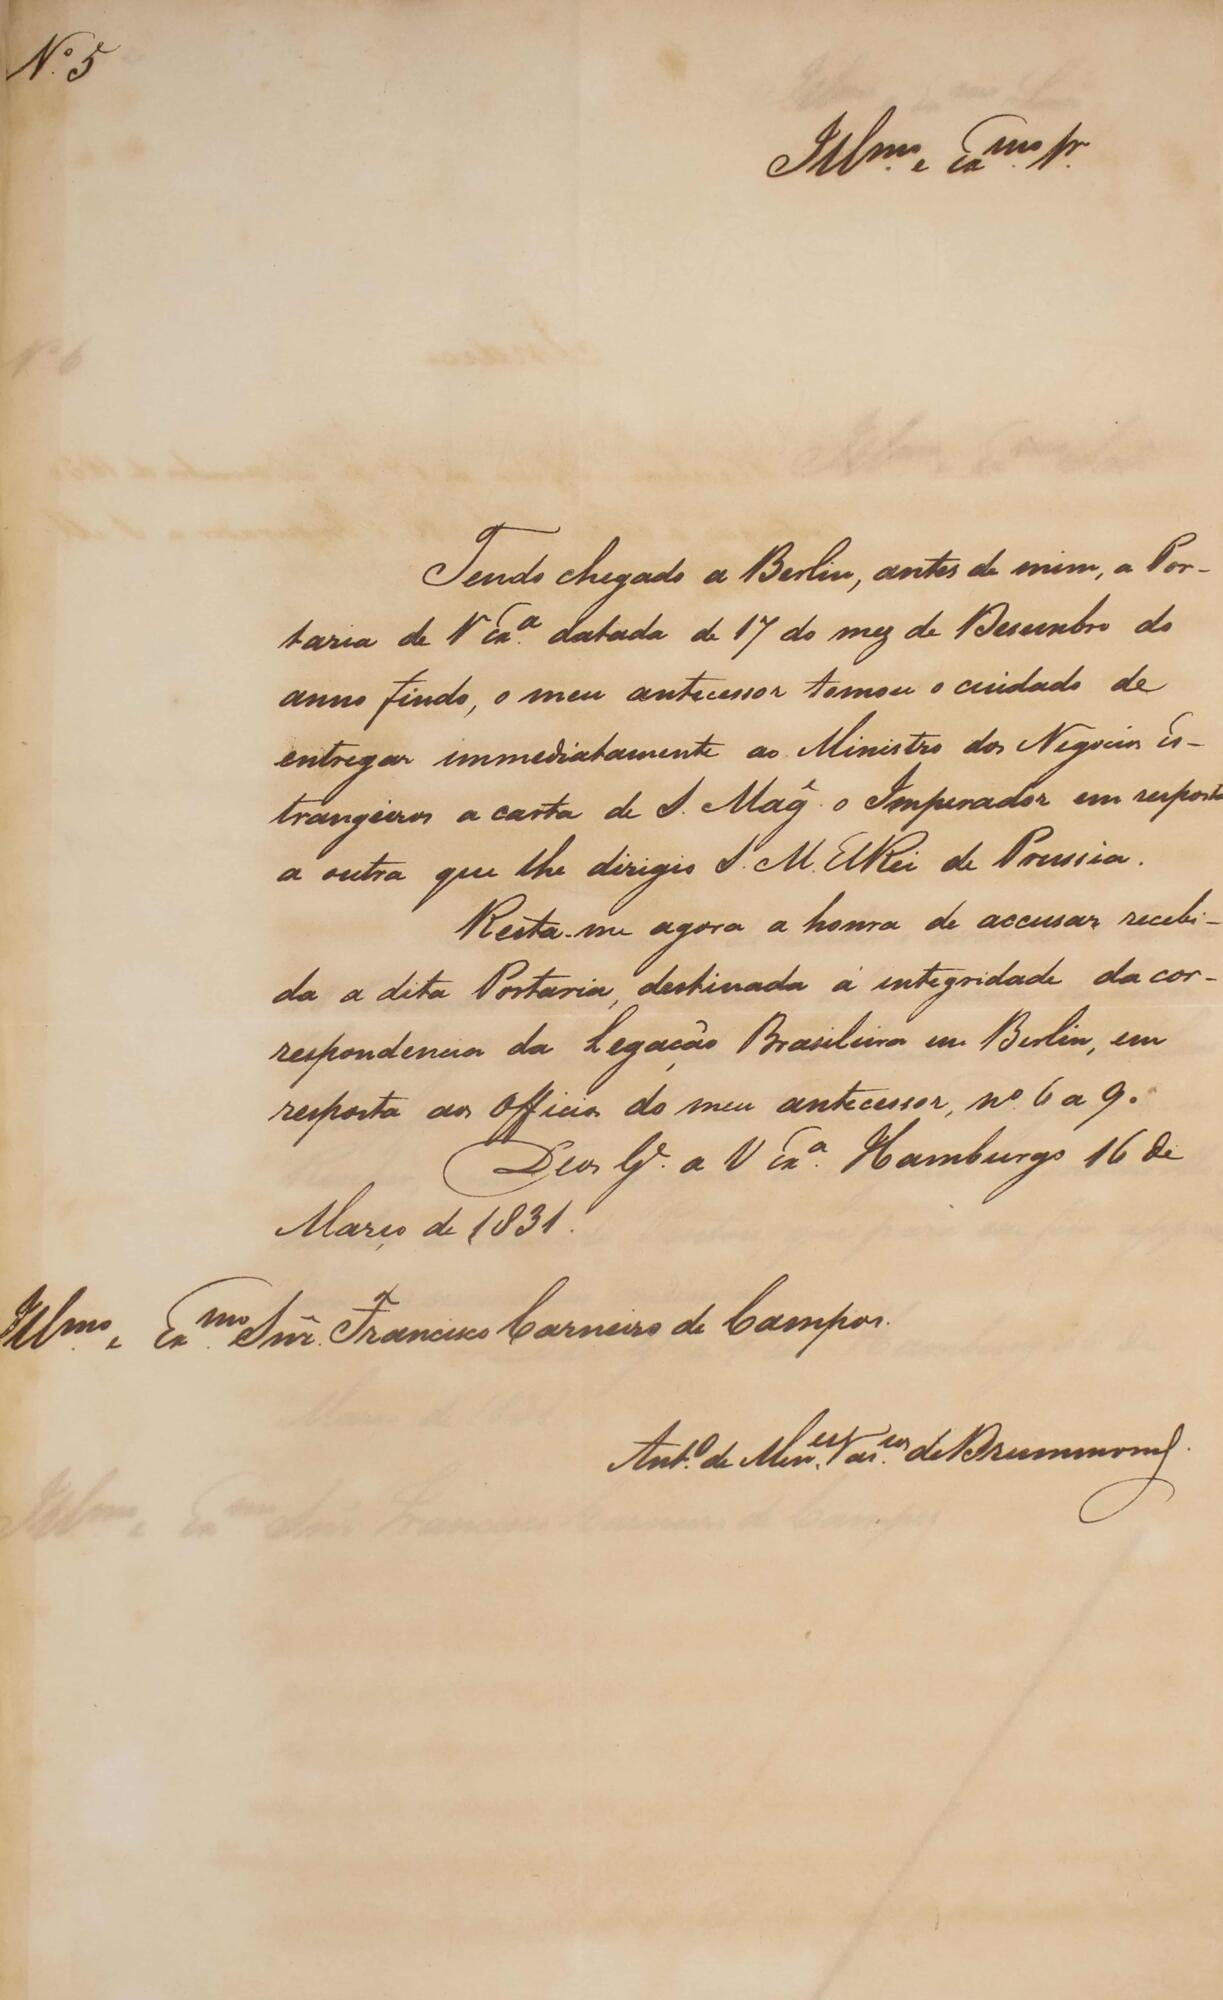 Nº 5
Illmo. e Exmo. Sr.
Tendo chegado a Berlin, antes de mim, a Por-
taria de V Exª. datada de 17 do mez de Desembro do
anno findo, o meu antecessor tomou o cuidado de
entregar immediatamente ao Ministro dos Negocios Es-
trangeiros a carta de S. Magᵉ. o Imperador em resposta
a outra que lhe dirigio S. M. ElRei de Prussia.
Resta-me agora a honra de accusar recebi-
da a dita Portaria, destinada á integridade da cor-
respondencia da Legação Brasileira em Berlin, em
resposta aos Officios do meu antecessor, nº. 6 a 9.
Deos Gᵉ. a V Exª. Hamburgo 16 de
Março de 1831.
Illmo. e Exmo. Snr̃. Francisco Carneiro de Campos.
Antº. de Menᵉˢ. Vasᶜᵒˢ. de Drummond.